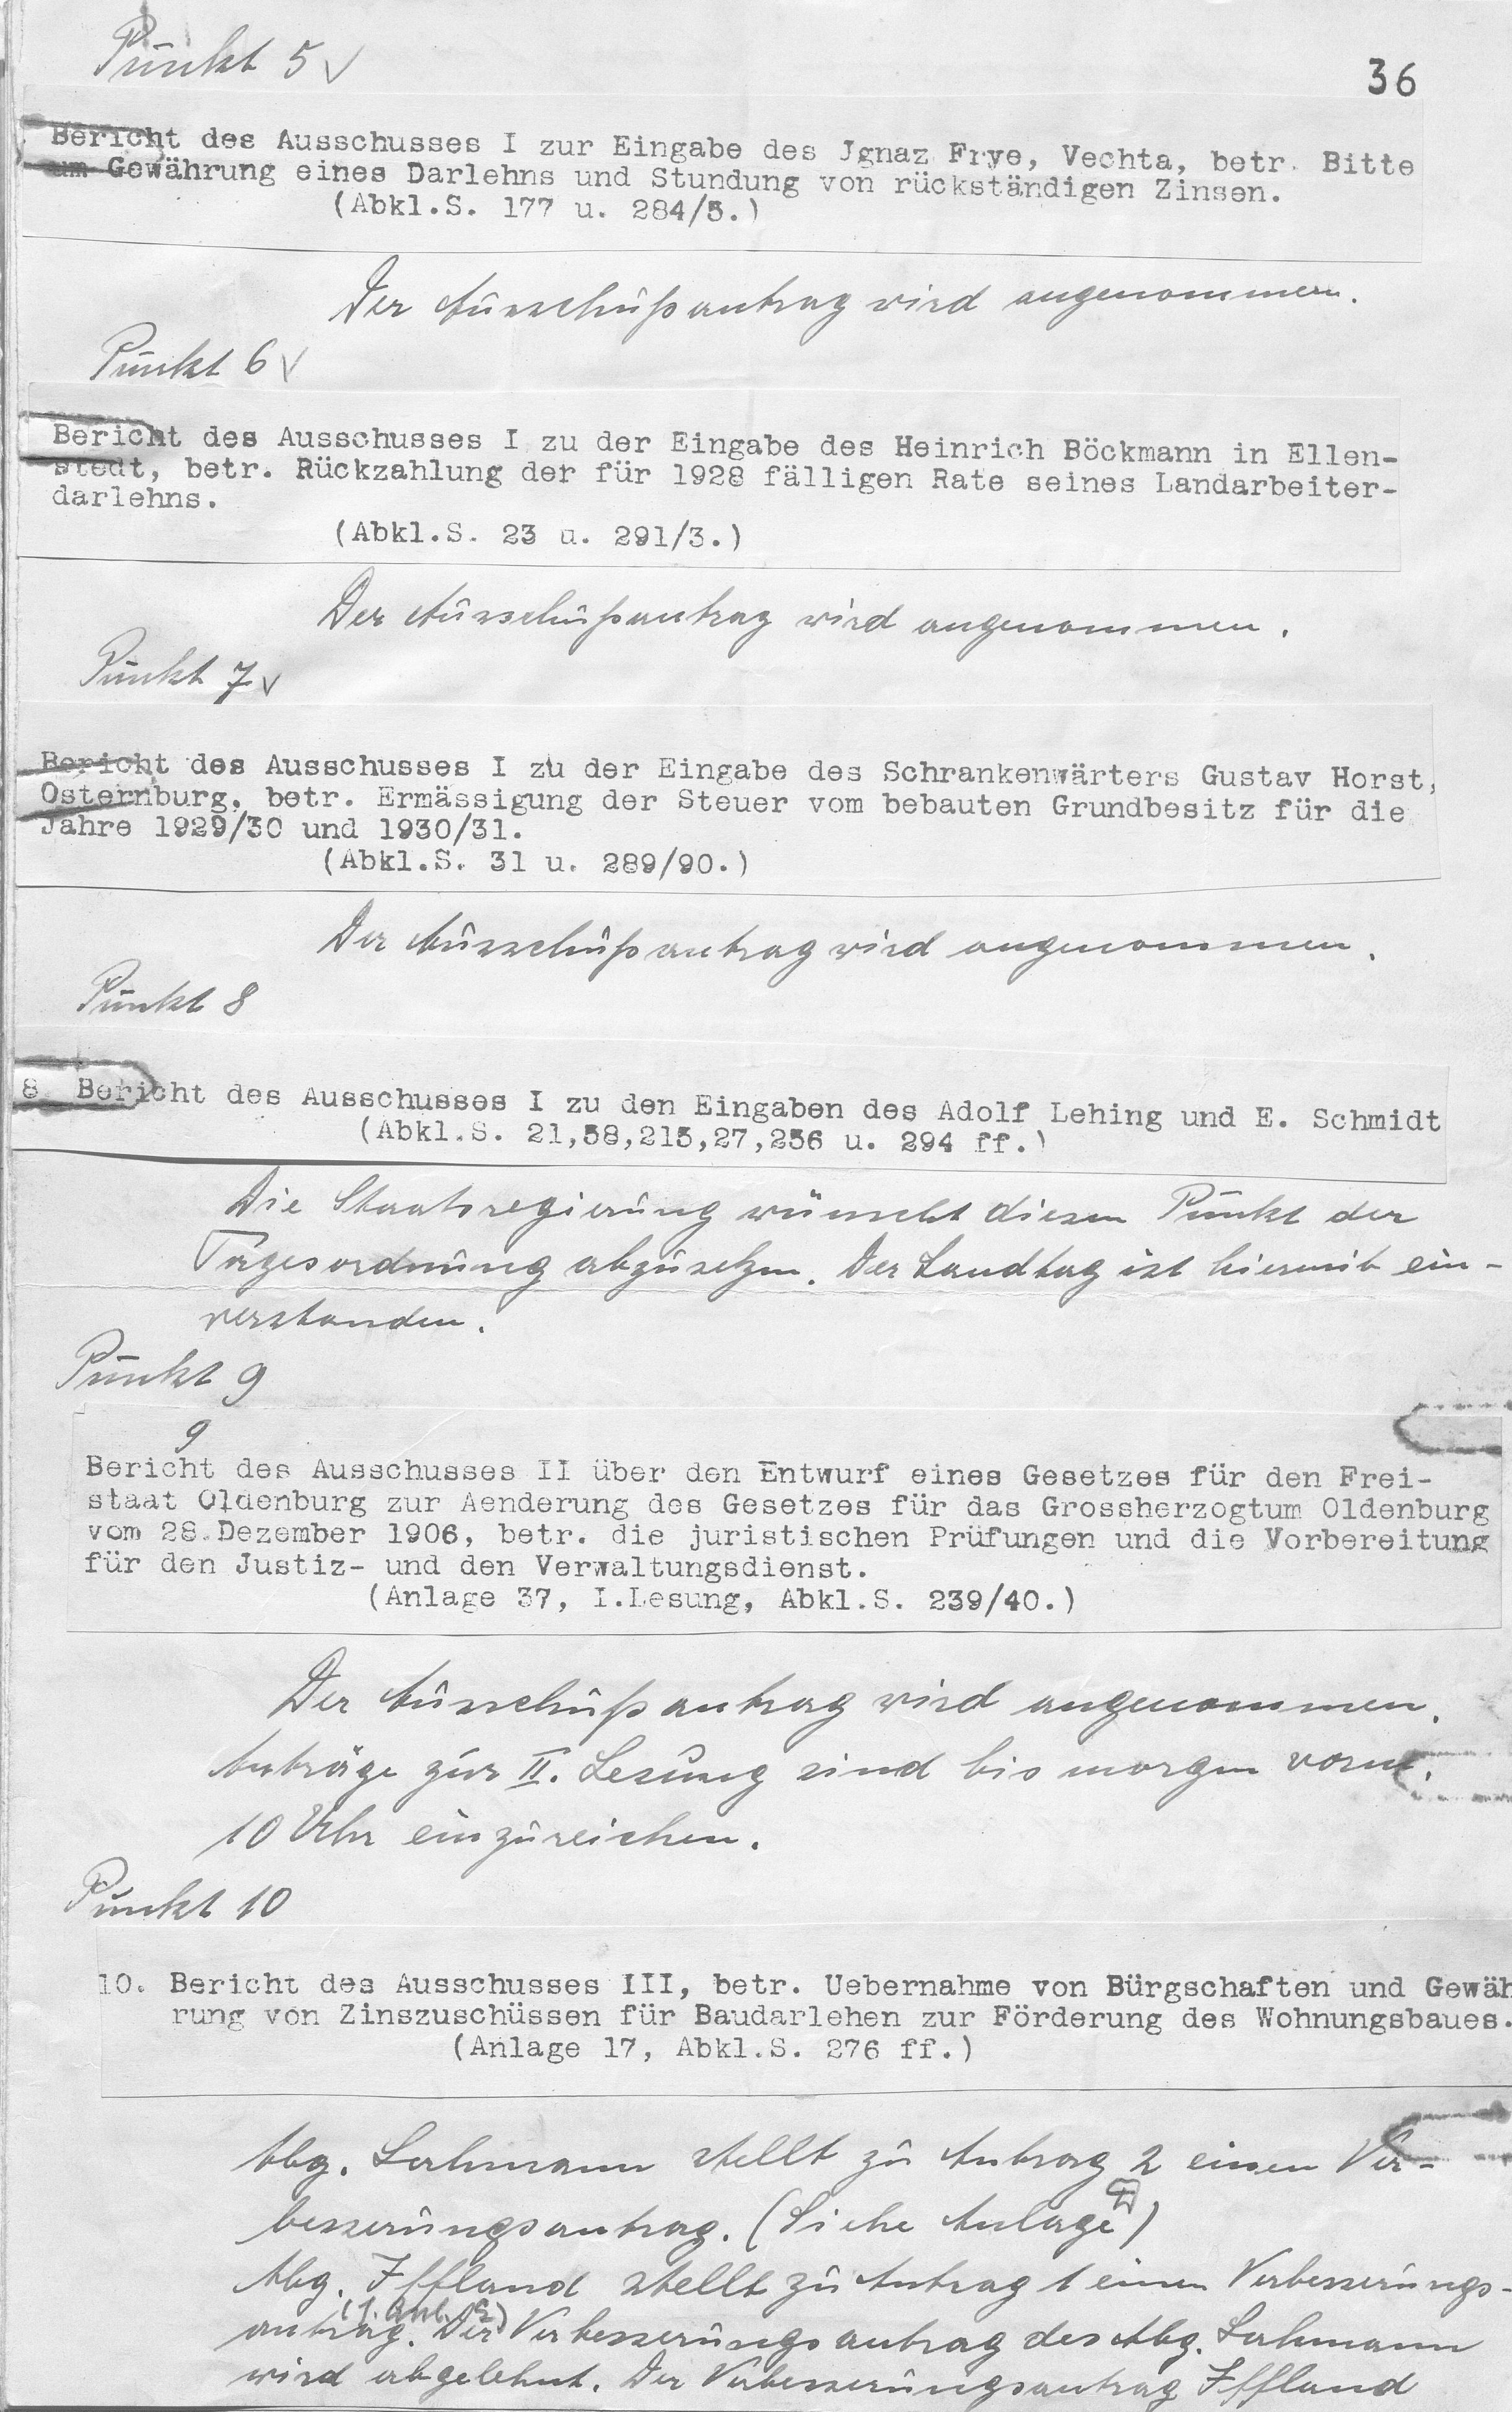 Punkt 5 √
36
Bericht des Ausschusses I zur Eingabe des Jgnaz Frye, Vechta, betr. Bitte
um Gewährung eines Darlehns und Stundung von rückständigen Zinsen.
(Abkl.S. 177 u. 284/5.)
Der Ausschußantrag wird angenommen.
Punkt 6 √
Bericht des Ausschusses I zu der Eingabe des Heinrich Böckmann in Ellen-
stedt, betr. Rückzahlung der für 1928 fälligen Rate seines Landarbeiter-
darlehns.
(Abkl.S. 23 u. 291/3.)
Der Ausschußantrag wird angenommen.
Punkt 7 √
Bericht des Ausschusses I zu der Eingabe des Schrankenwärters Gustav Horst,
Osternburg, betr. Ermässigung der Steuer vom bebauten Grundbesitz für die
Jahre 1929/30 und 1930/31.
(Abkl.S. 31 u. 289/90.)
Der Ausschußantrag wird angenommen.
Punkt 8
8. Bericht des Ausschusses I zu den Eingaben des Adolf Lehing und E. Schmidt
(Abkl.S. 21,58,215,27,256 u. 294 ff.)
Die Staatsregierung wünscht diesen Punkt der
Tagesordnung abzusetzen. Der Landtag ist hiermit ein-
verstanden.
Punkt 9
9
Bericht des Ausschusses II über den Entwurf eines Gesetzes für den Frei-
staat Oldenburg zur Aenderung des Gesetzes für das Grossherzogtum Oldenburg
vom 28.Dezember 1906, betr. die juristischen Prüfungen und die Vorbereitung
für den Justiz- und den Verwaltungsdienst.
(Anlage 37, I.Lesung, Abkl.S. 239/40.)
Der Ausschußantrag wird angenommen.
Anträge zur II. Lesung sind bis morgen vorm.
10 Uhr einzureichen.
Punkt 10
10. Bericht des Ausschusses III, betr. Uebernahme von Bürgschaften und Gewäh
rung von Zinszuschüssen für Baudarlehen zur Förderung des Wohnungsbaues.
(Anlage 17, Abkl.S. 276 ff.)
Abg. Lahmann stellt zu Antrag 2 einen Ver-
besserungsantrag. (Siehe Anlage)
Abg. Iffland stellt zu Antrag 1 einen Verbesserungs-
antrag. Der Verbesserungsantrag des Abg. Lahmann
wird abgelehnt. Der Verbesserungsantrag Iffland